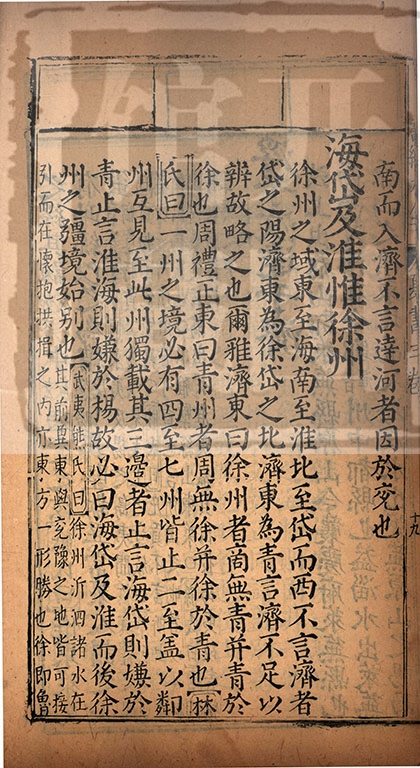 南而入濟不言達河者因於兗也
海岱及淮惟徐州
徐州之域東至海南至淮北至岱而西不言濟者
岱之陽濟東為徐岱之北濟東為青言濟不足以
辨故略之也爾雅濟東曰徐州者商無青并青於
徐也周禮正東曰青州者周無徐并徐於青也林
氏曰一州之境必有四至七州皆止二至盖以鄰
州互見至此州獨載其三邊者止言海岱則嫌於
青止言淮海則嫌於楊故必曰海岱及淮而後徐
州之彊境始别也武夷熊氏曰徐州沂泗諸水在
其前與東與兗豫之地皆可接
引而在懷抱拱揖之内亦東方一形勝也徐即魯
十九